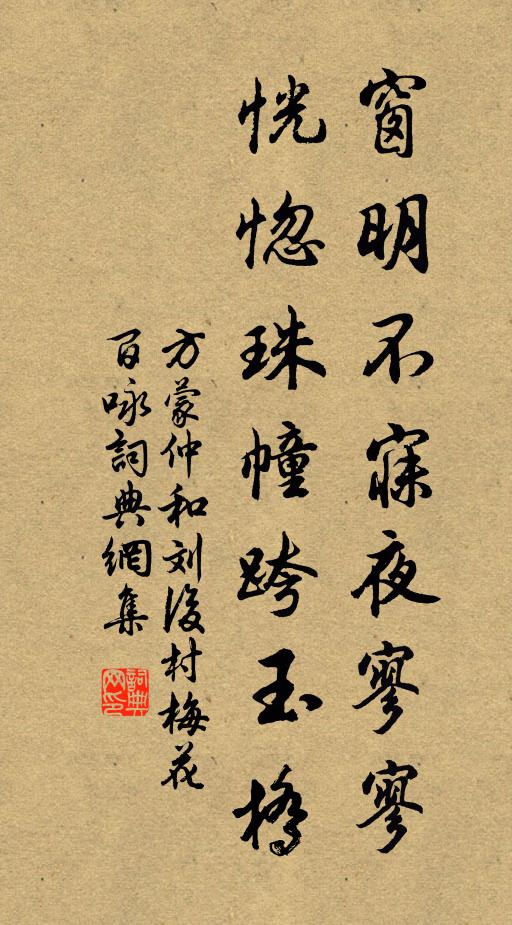 窗明不寐夜寥寥
恍惚珠幢跨玉橋
方蒙仲和刘後村梅花
百咏詞典網集
詞典网印